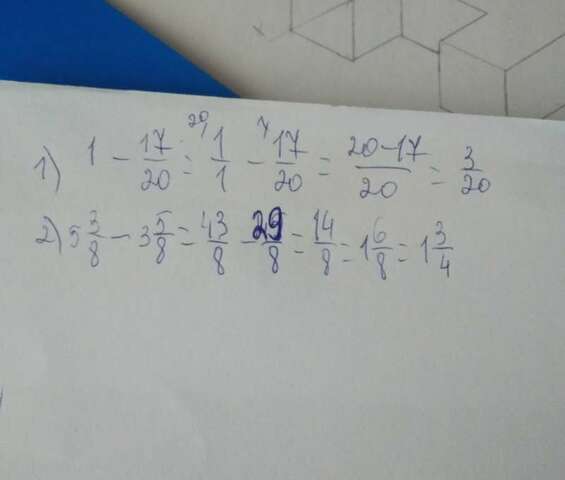 1) 1 - 17/20 = 20/ 1/1 - 1/ 17/20 = 20-17/20 = 3/20
2) 5 3/8 - 3 5/8 = 43/8 - 29/8 = 14/8 = 1 6/8 = 1 3/4